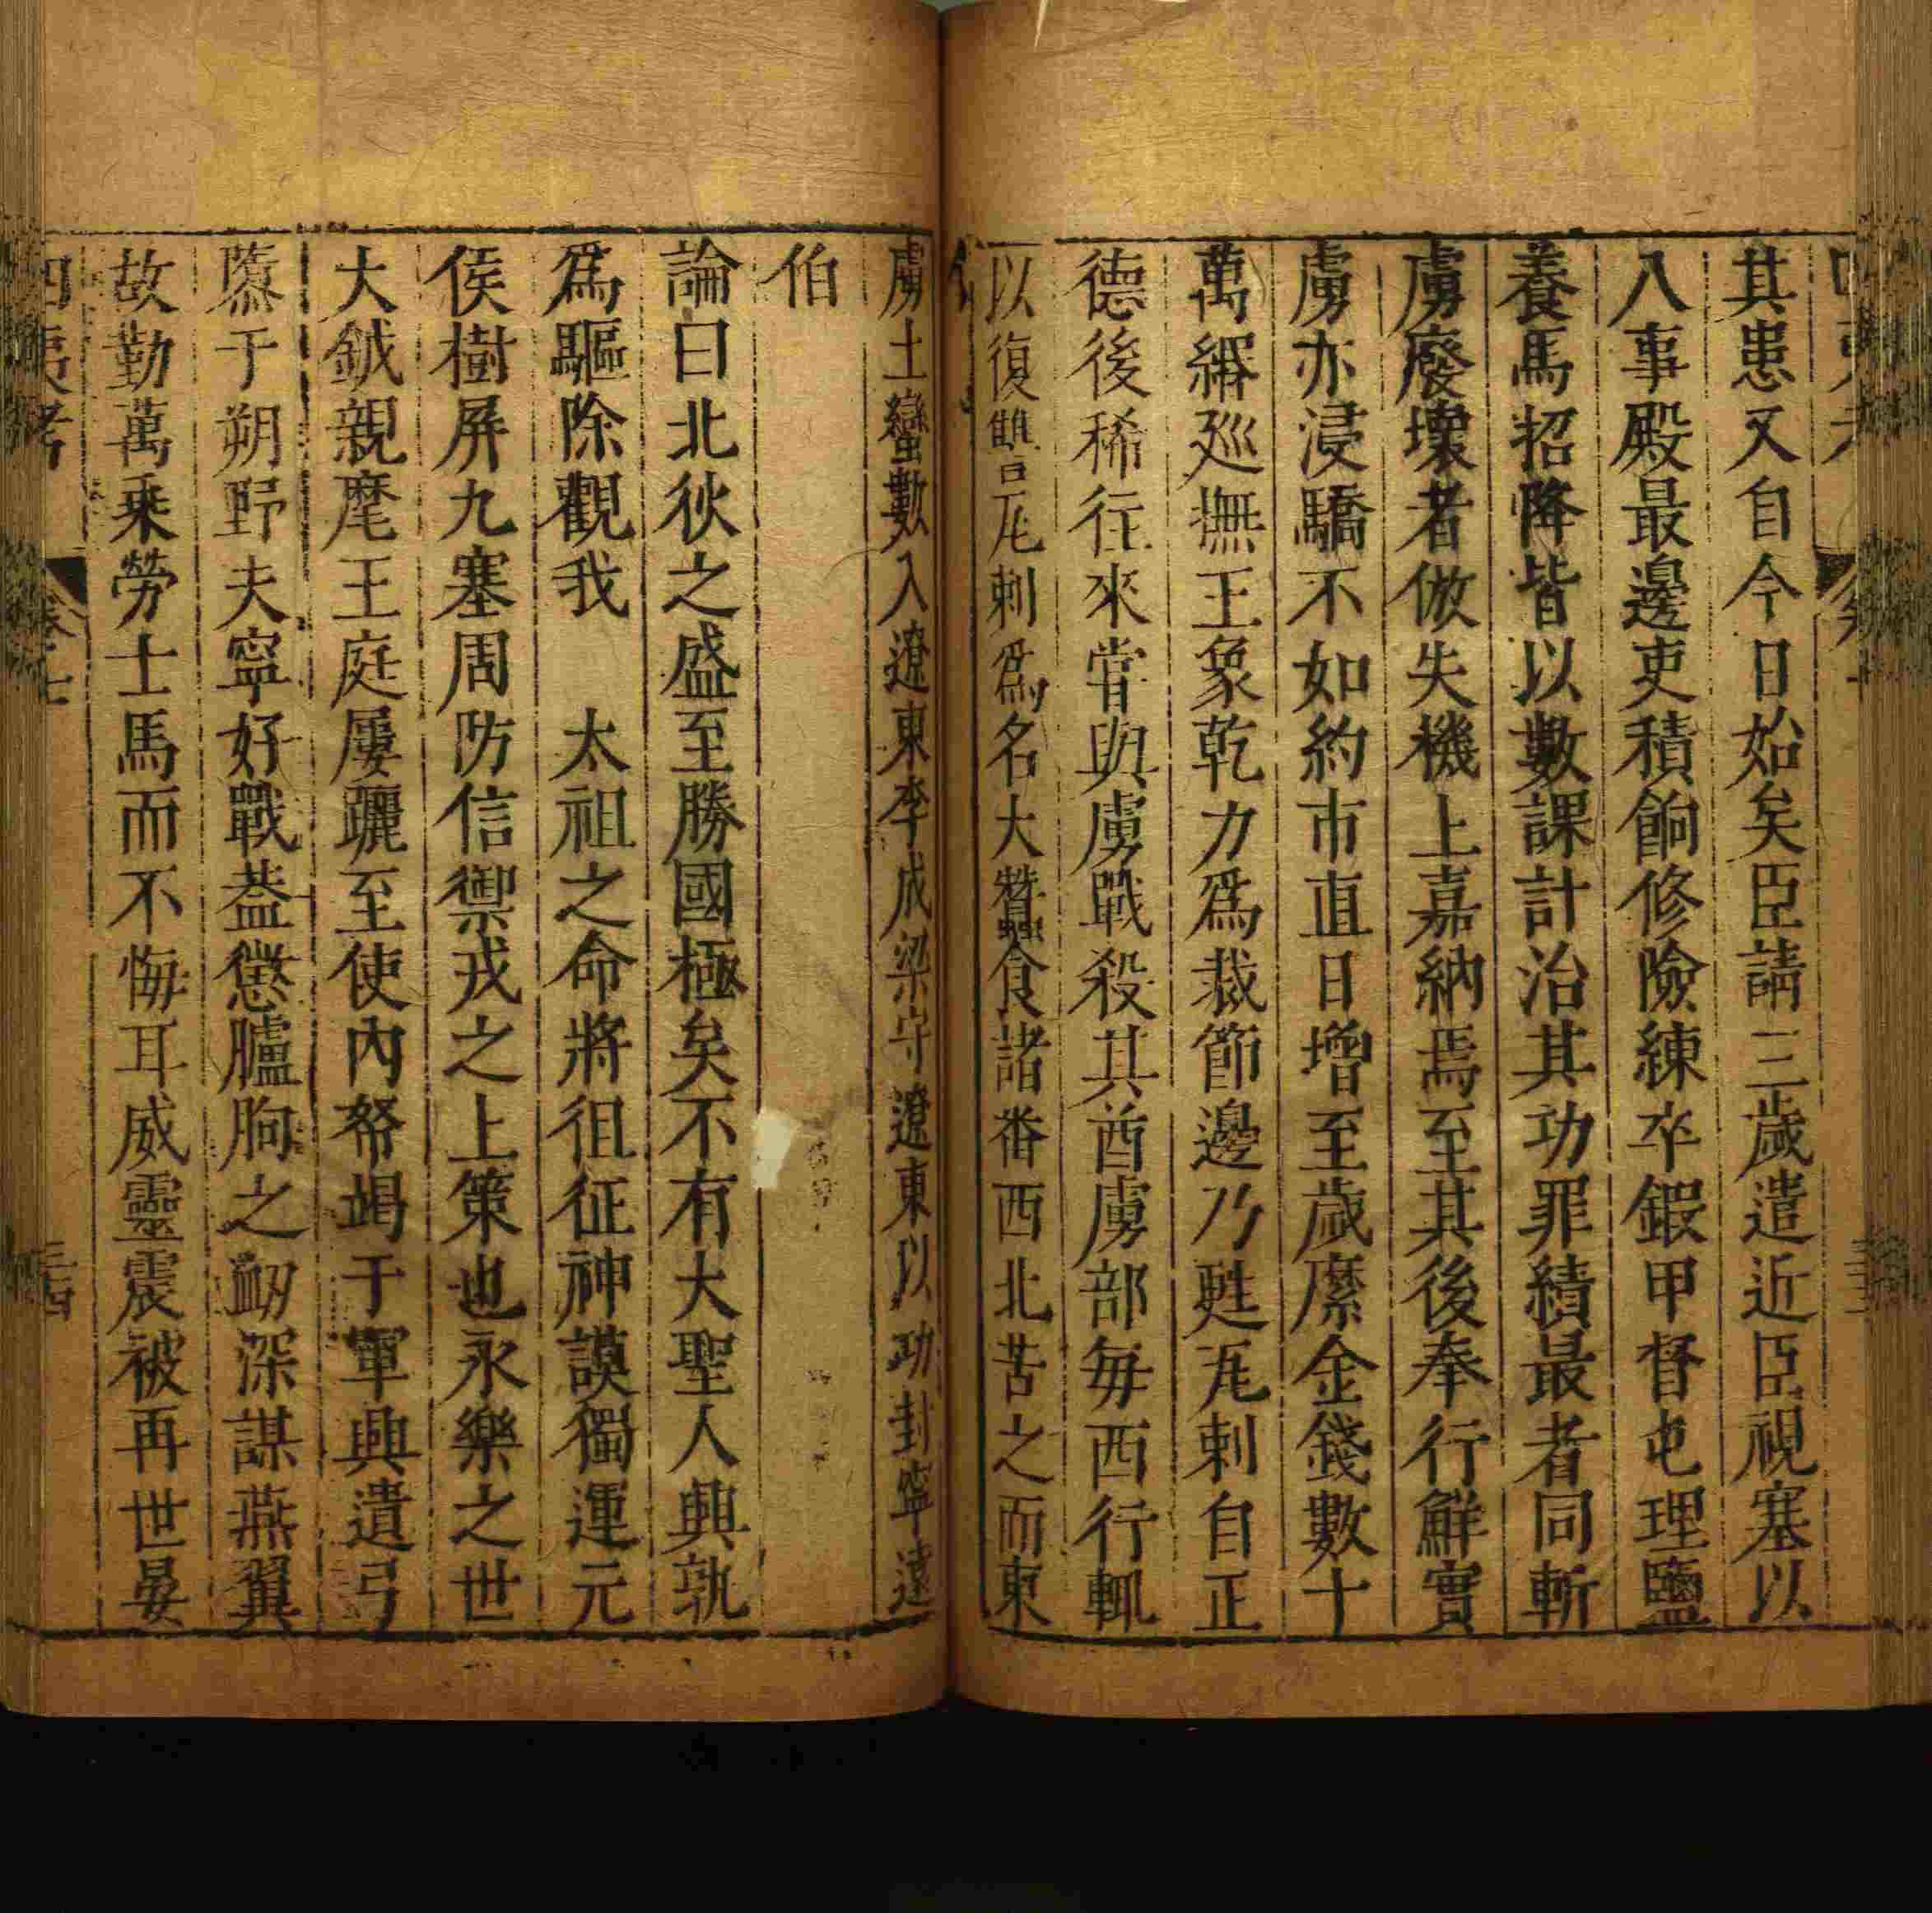 其患又自今日始矣臣請三歲遣近臣視塞以
八事殿最邊吏積餉修險練卒鍜甲督屯理鹽
養馬招降皆以數課計治其功罪績最者同斬
虜廢壞者倣失機上嘉納焉至其後奉行鮮實
虜亦浸驕不如約市直日增至歲縻金錢數十
萬緡廵撫王象乾力爲裁節邊乃甦兎剌自正
德後稀往來嘗與虜戰殺其酋虜部每西行輒
以復讐兎剌爲名大蠶食諸番西北苦之而東
虜土蠻數入遼東李成梁守遼東以功封寧遠
伯
論曰北狄之盛至勝國極矣不有大聖人興孰
爲驅除觀我　太祖之命將徂征神謨獨運元
侯樹屏九塞周防信禦戎之上策也永樂之世
大鉞親麾王庭屢躪至使內帑竭于軍興遺弓
隳于朔野夫寧好戰葢懲臚朐之衂深謀燕翼
故勤萬乗勞士馬而不悔耳威靈震被再世晏
四夷考
卷七
三四